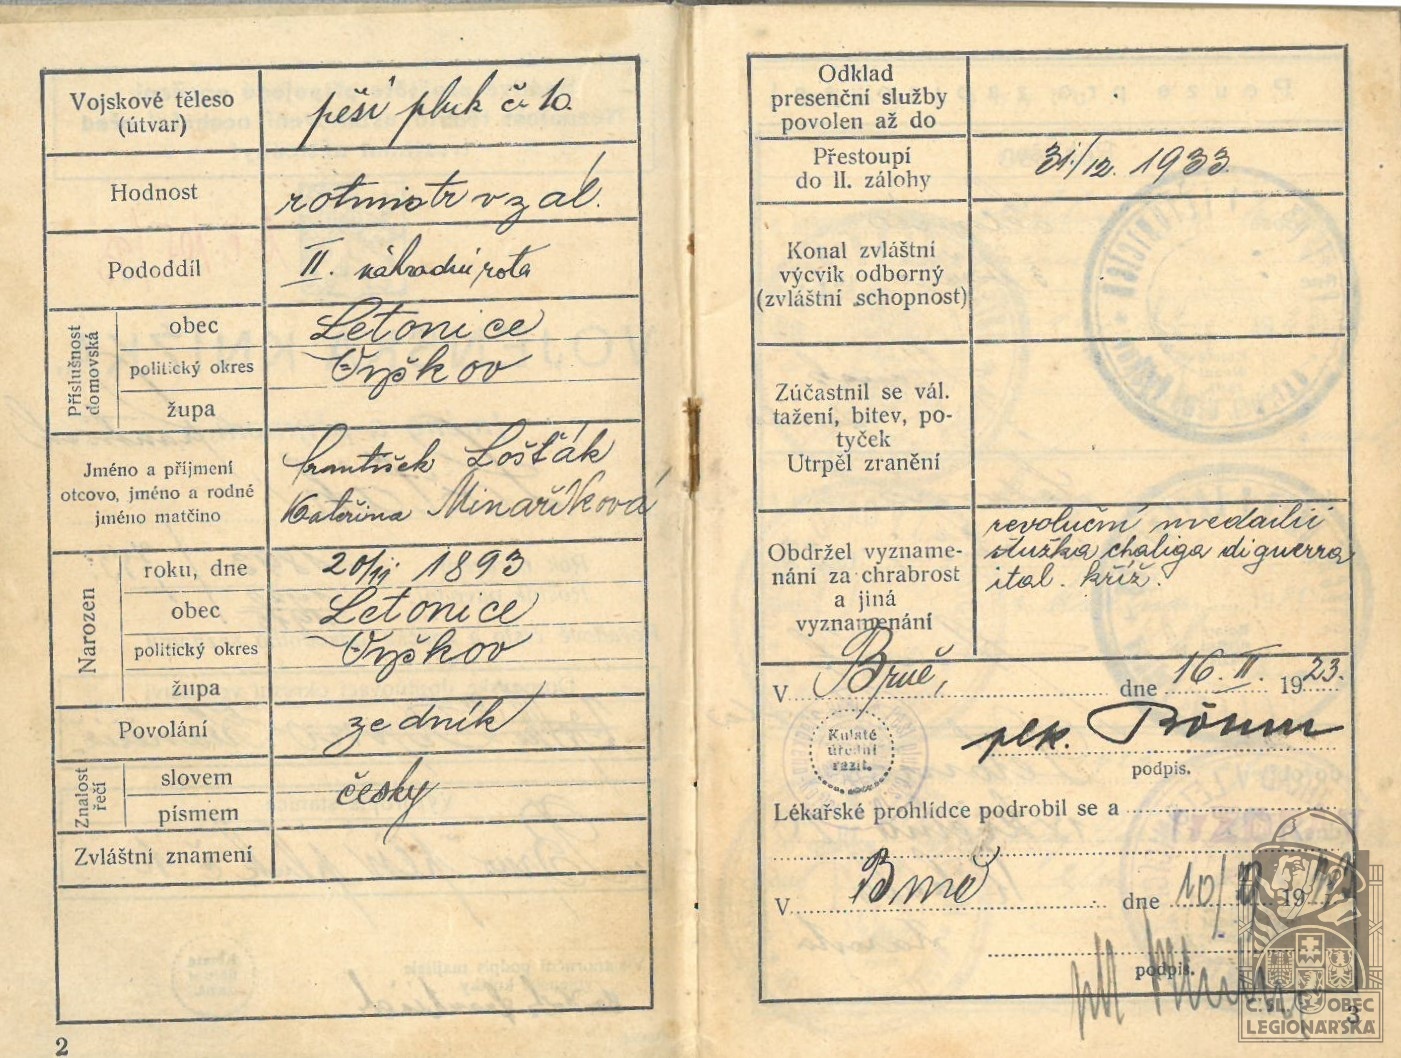 Vojskové těleso
(útvar)
pěší pluk č. 10.
Hodnost
rotmistr v zál.
Pododdíl
II. náhradní rota
Příslušnost
domovská
obec
Letonice
politický okres
Vyškov
župa
Jméno a příjmení
otcovo, jméno a rodné
jméno matčino
František Lošťák
Kateřina Minaříková
Narozen
roku, dne
20/11 1893
obec
Letonice
politický okres
Vyškov
župa
Povolání
zedník
Znalost
řečí
slovem
písmem
česky
Zvláštní znamení
2
Odklad
presenční služby
povolen až do
Přestoupí
do II. zálohy
31./12. 1933.
Konal zvláštní
výcvik odborný
(zvláštní schopnost)
Zúčastnil se vál.
tažení, bitev, po-
tyček
Utrpěl zranění
Obdržel vyzname-
nání za chrabrost
a jiná
vyznamenání
revoluční medailii
stužka chaliga di guerra
ital. kříž.
V Brně, dne 16. II. 1923.
plk. Böhm
podpis.
Kulaté
úřední
razít.
Lékařské prohlídce podrobil se a
V Brně dne 10/ 19
podpis.
3
Č.SL. OBEC
LEGIONÁŘSKÁ